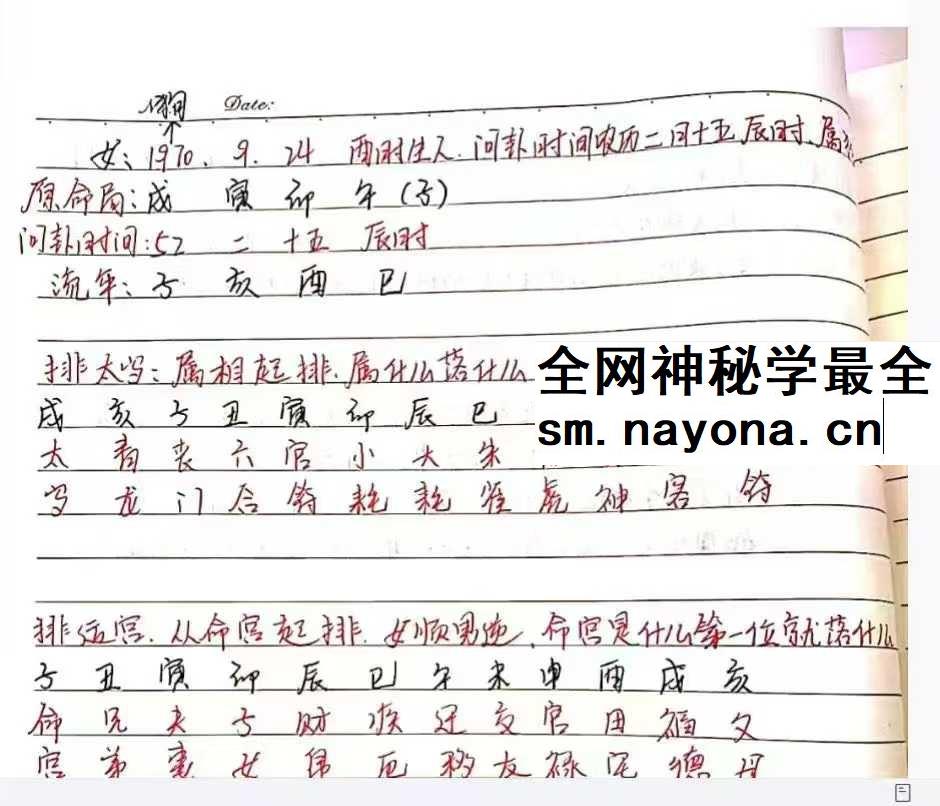 时间 Date:
女:1970.9.24 酉时生人.问卦时间农历二月十五辰时.属
原命局:戌 寅 卯 午(子)
问卦时间:52 二 十五 辰时
流年:子 亥 酉 巳
排太岁:属相起排.属什么落什么
全网神秘学最全
戌 亥 子 丑 寅 卯 辰 巳
sm.nayona.cn
太 青 丧 六 官 小 大 朱
岁 龙 门 合 符 耗 耗 雀 虎 神 客 符
排 宫.从命宫起排.女顺男逆.命宫是什么第一位就落什么
子 丑 寅 卯 辰 巳 午 未 申 酉 戌 亥
命 兄 夫 子 财 疾 迁 交 官 田 福 父
宫 弟 妻 女 帛 厄 移 友 禄 宅 德 母